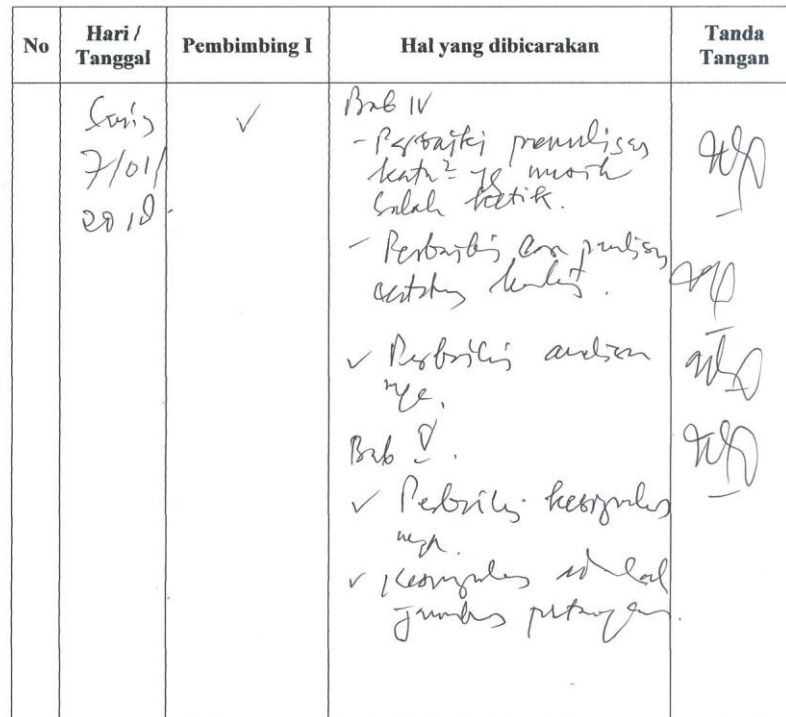 No
Hari / Tanggal
Pembimbing I
Hal yang dibicarakan
Tanda Tangan
7/01/
2018
✓
Bab IV
- Perbaiki penulisan
kata² yg masih
salah ketik.
- Perbaiki cara penulisan
catatan kaki.
✓ Perbaiki
nya.
Bab V.
✓ Perbaiki kesimpulan
nya.
✓ Kesimpulan adalah